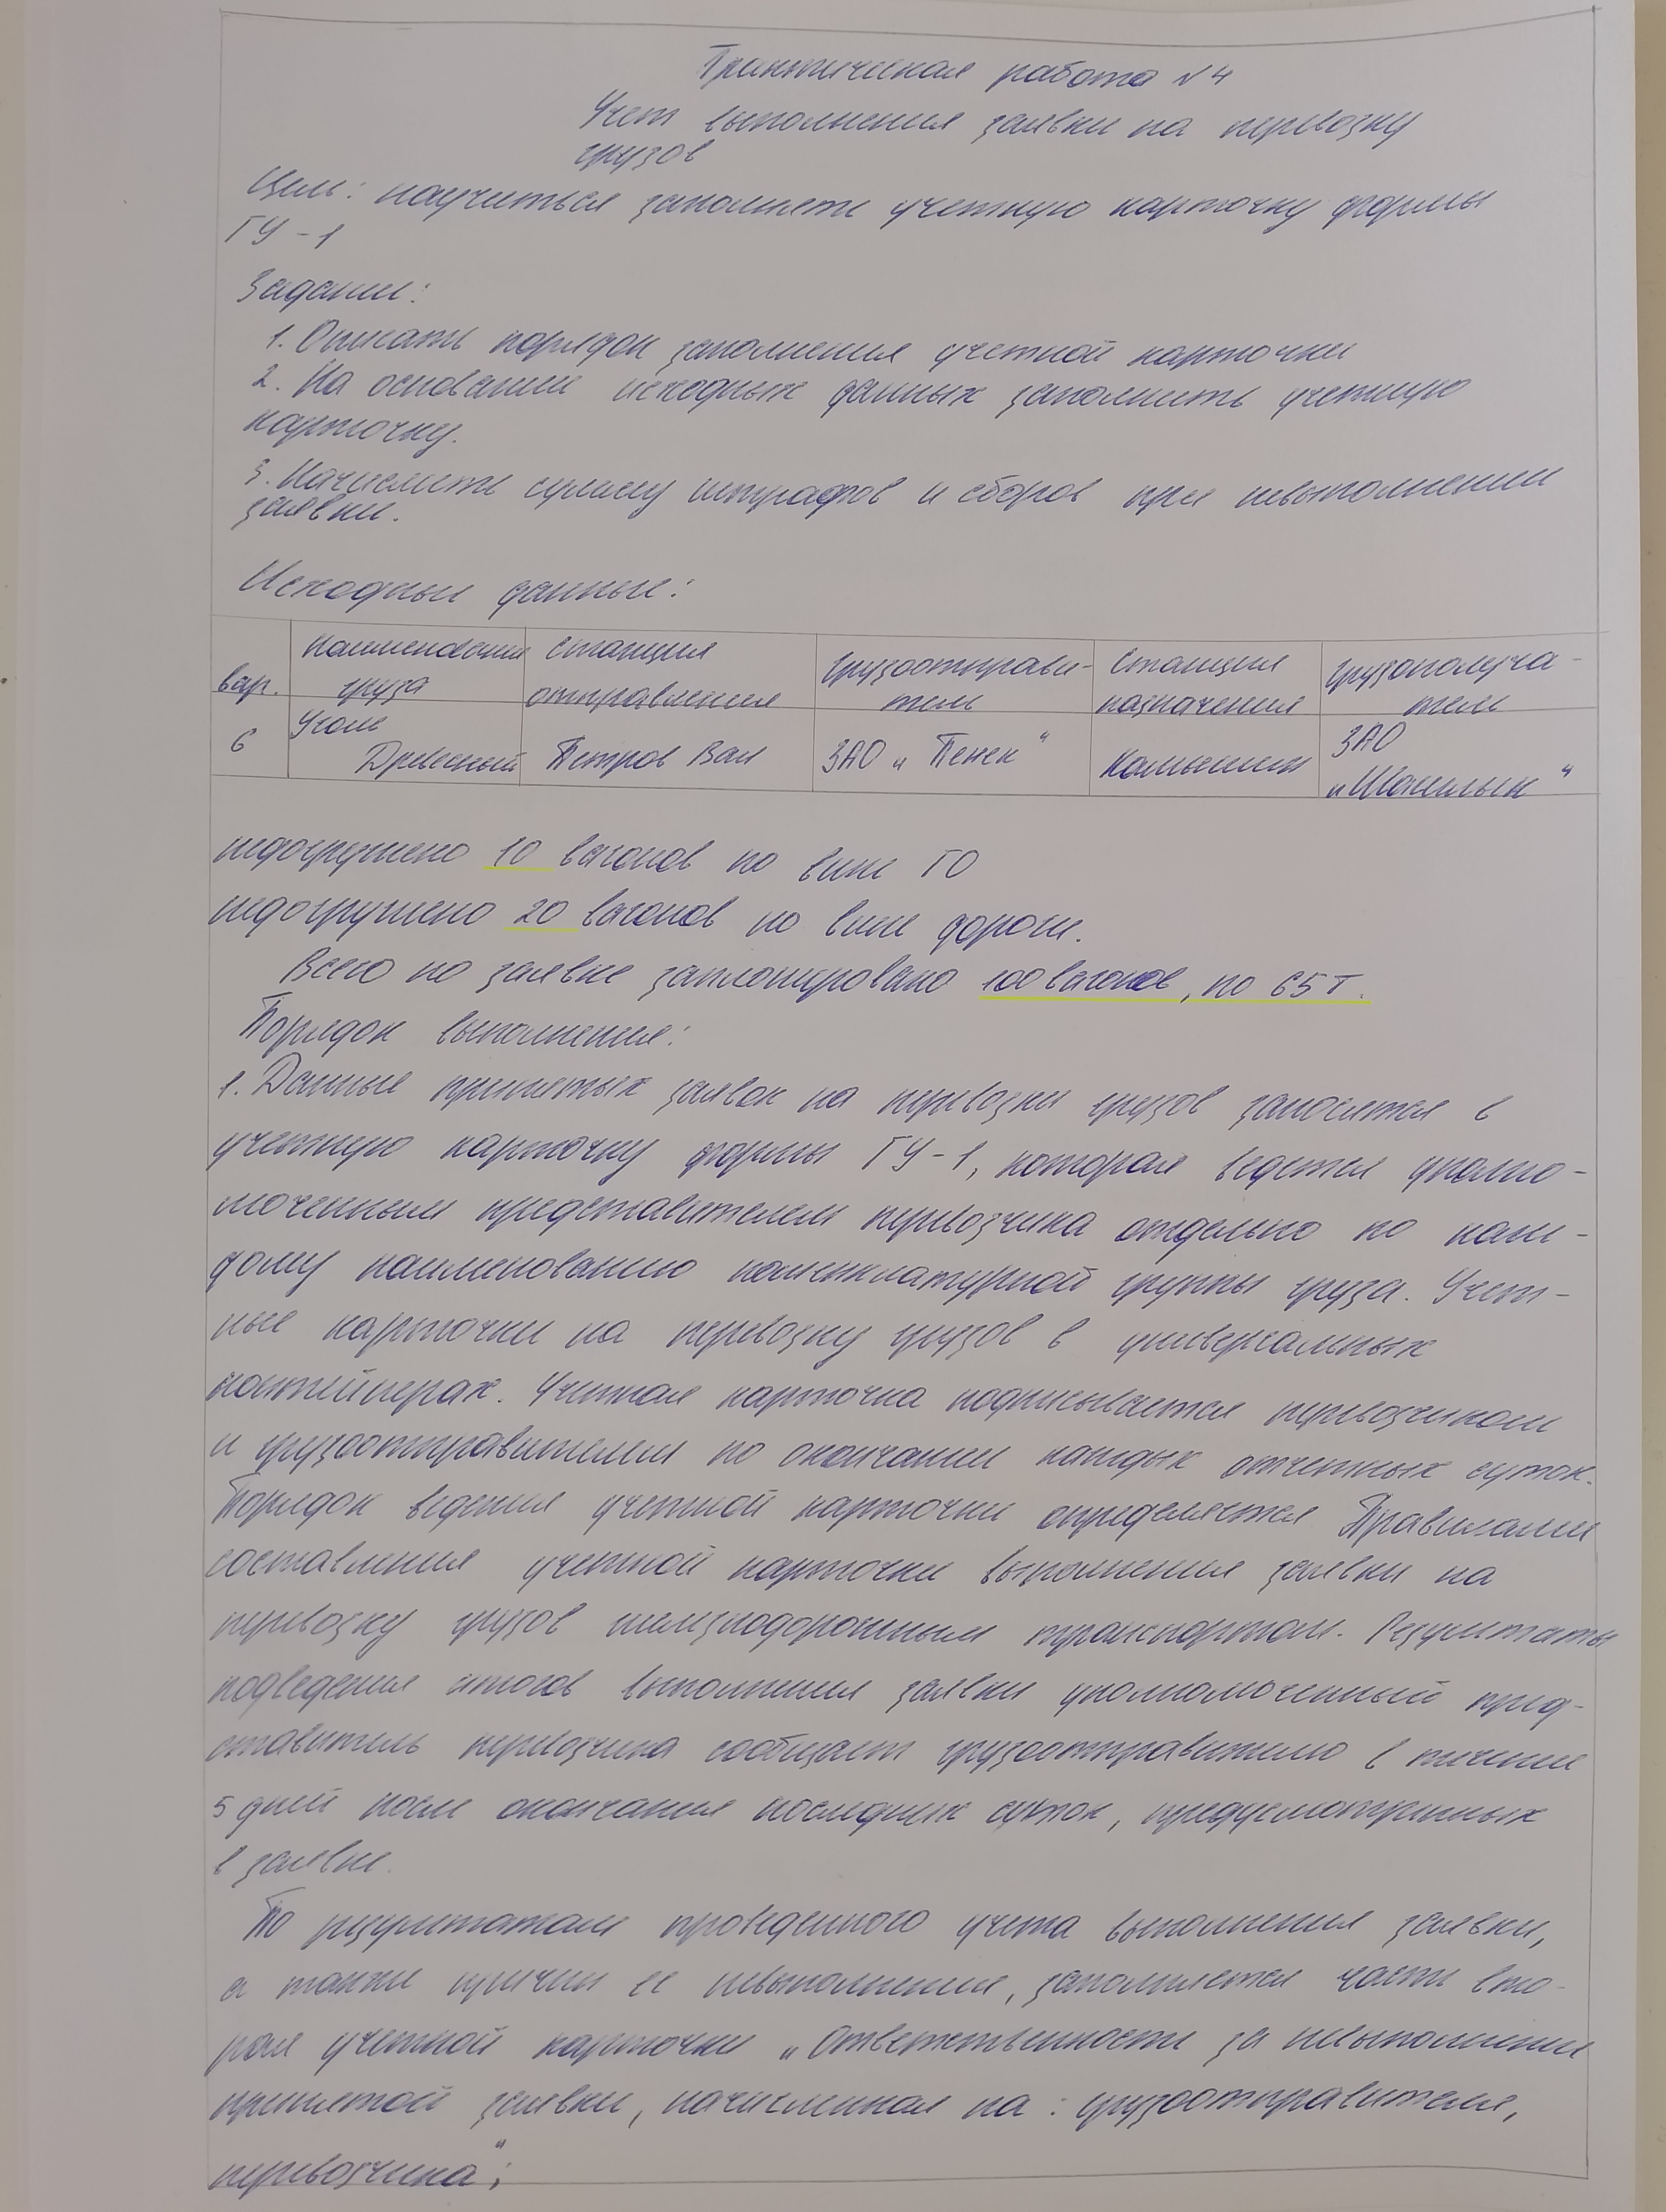 Практическая работа №4
Учет выполнения заявки на перевозку
грузов
Цель: научиться заполнять учетную карточку формы
ГУ-1
Задание:
1. Описать порядок заполнения учетной карточки
2. На основании исходных данных заполнить учетную
карточку.
3. Начислить сумму штрафов и сборов при невыполнении
заявки.
Исходные данные:
вар. Наименование груза Станция отправления Грузоотправи-тель Станция назначения Грузополуча-тель
6 Уголь Древесный Петров Вал ЗАО „Пенек“ Камышин ЗАО „Шашлык“
недогружено 10 вагонов по вине ГО
недогружено 20 вагонов по вине дороги.
Всего по заявке запланировано 100 вагонов, по 65 т.
Порядок выполнения:
1. Данные принятых заявок на перевозки грузов заносятся в
учетную карточку формы ГУ-1, которая ведется уполно-
моченным представителем перевозчика отдельно по каж-
дому наименованию номенклатурной группы груза. Учет-
ные карточки на перевозку грузов в универсальных
контейнерах. Учетная карточка подписывается перевозчиком
и грузоотправителем по окончании каждых отчетных суток.
Порядок ведения учетной карточки определяется Правилами
составления учетной карточки выполнения заявки на
перевозку грузов железнодорожным транспортом. Результаты
подведения итогов выполнения заявки уполномоченный пред-
ставитель перевозчика сообщает грузоотправителю в течение
5 дней после окончания последних суток, предусмотренных
в заявке.
По результатам проведенного учета выполнения заявки,
а также причин ее невыполнения, заполняется часть вто-
рая учетной карточки „Ответственность за невыполнение
принятой заявки, начисленная на: грузоотправителя,
перевозчика“;